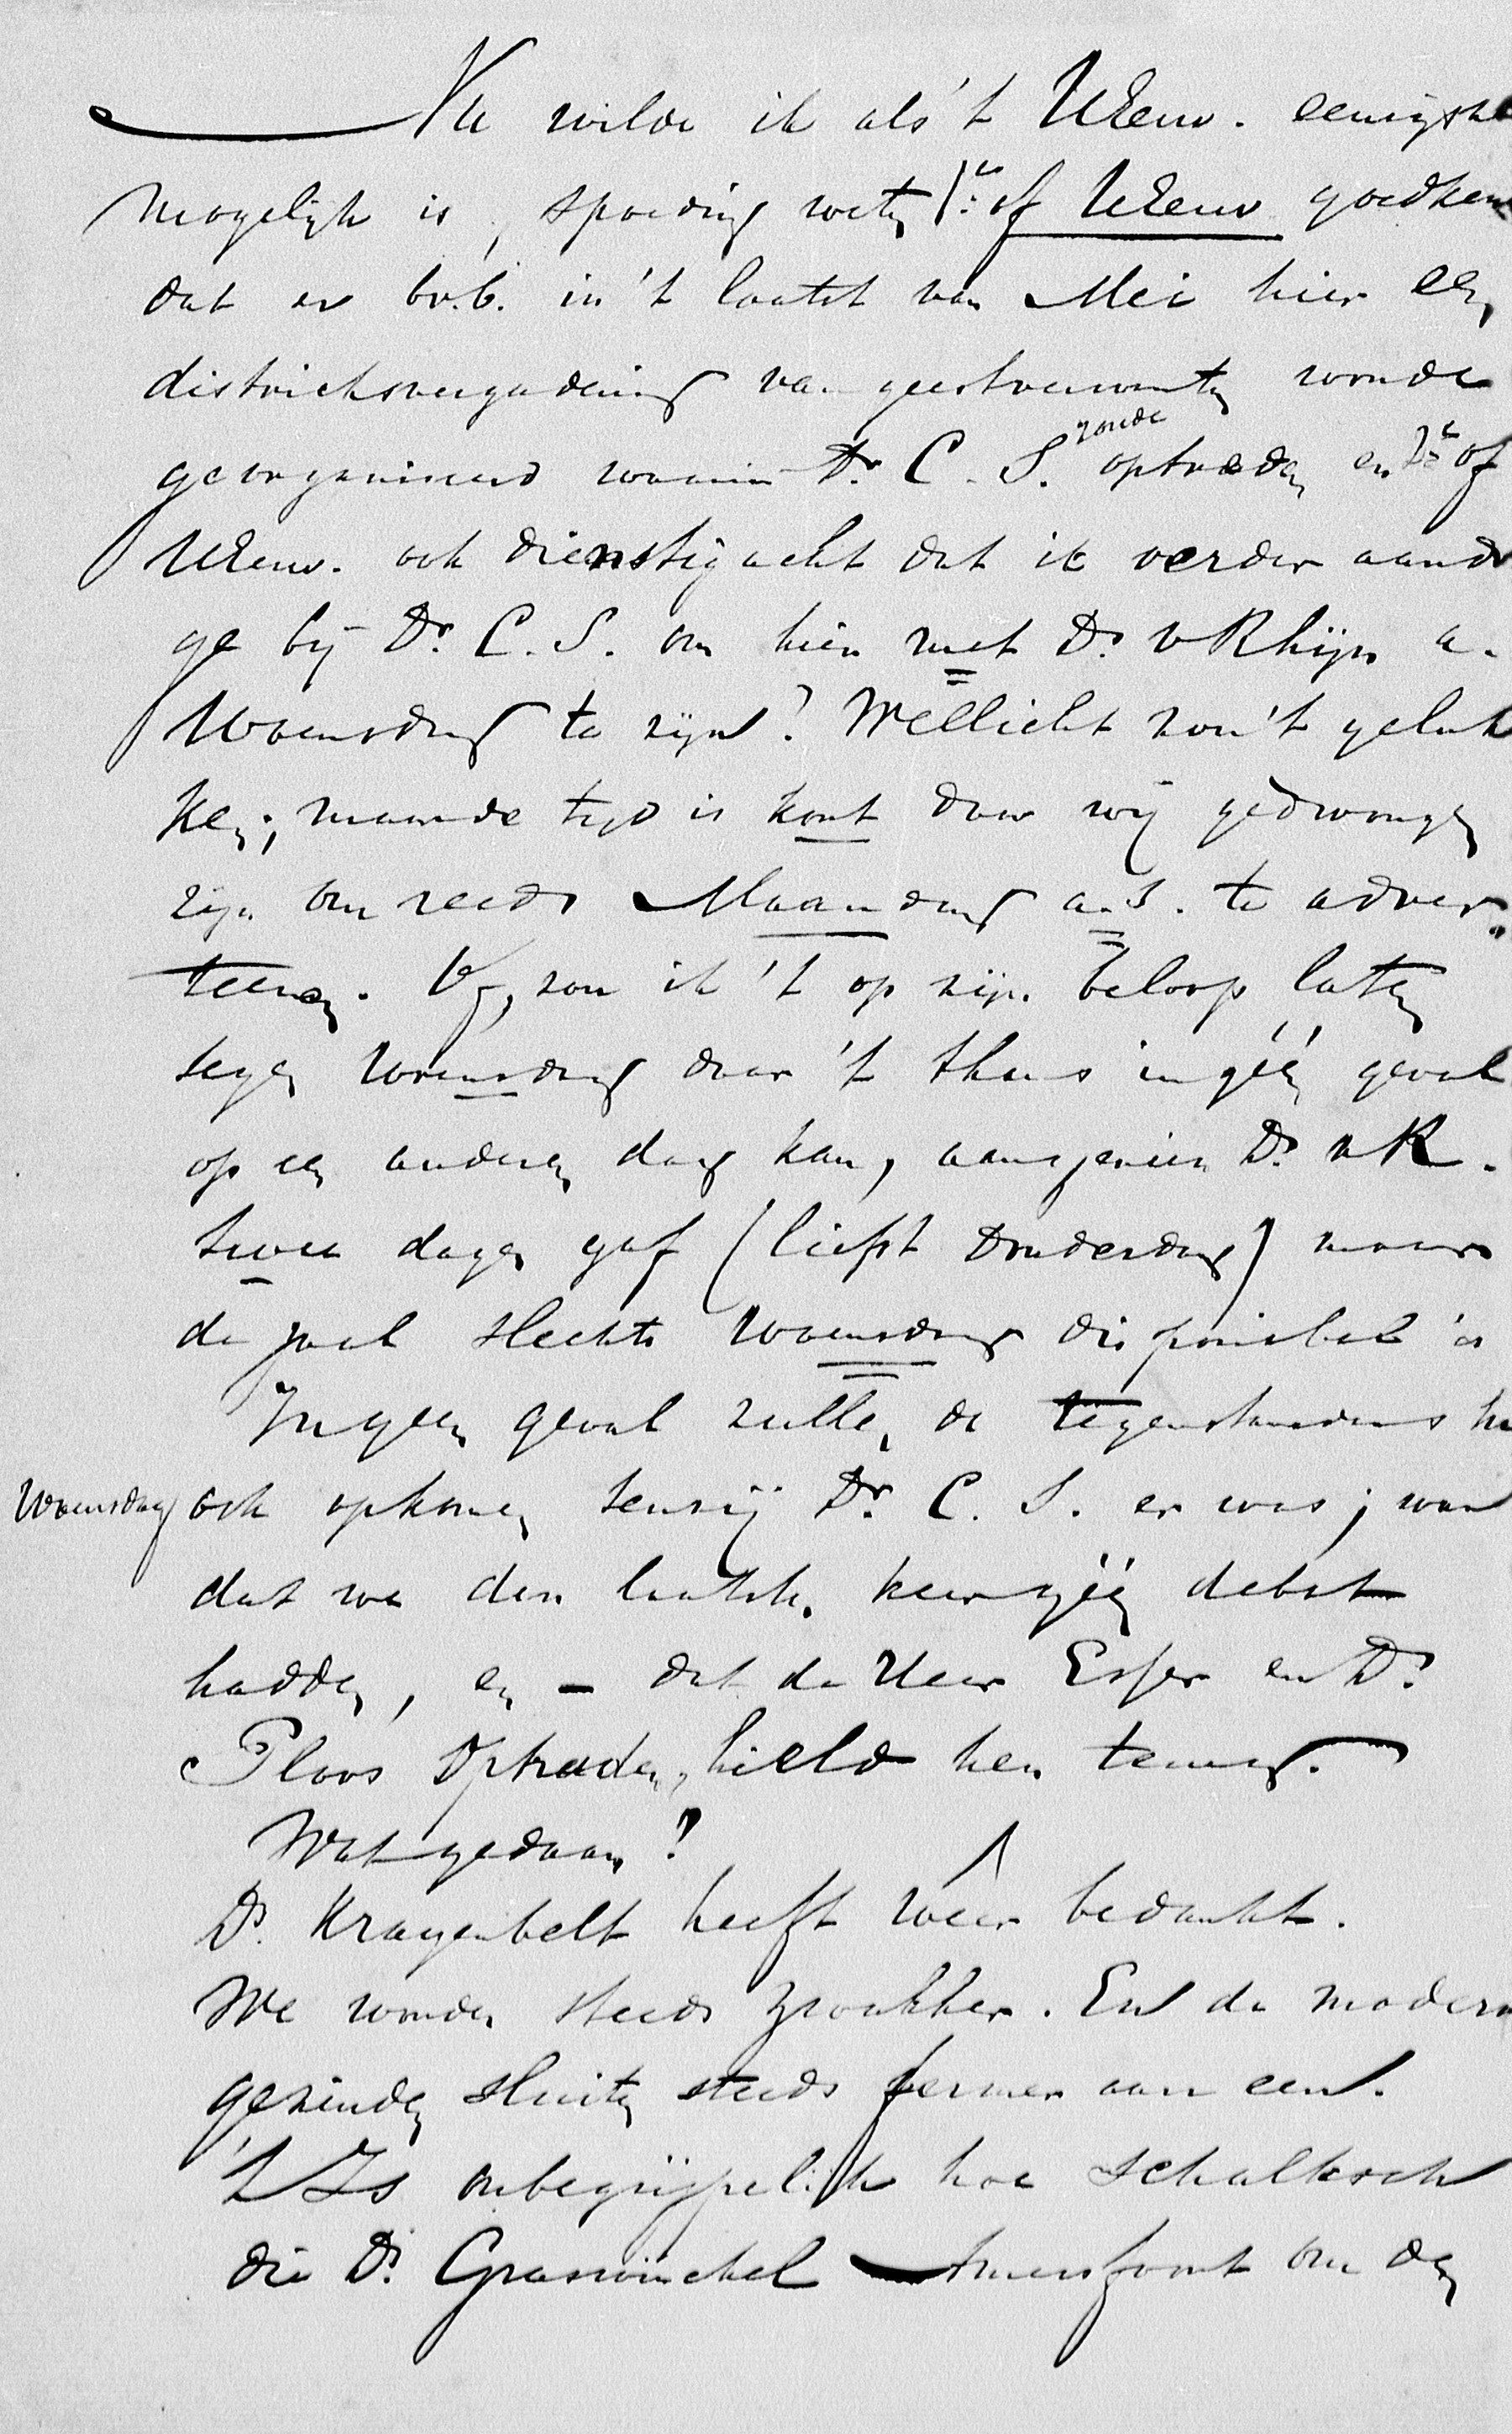 Nu wilde ik als 't UEerw. eenigste
mogelijk is, spoedig weten 1e: of UEerw goedken
dat er bv.b. in 't laatst van Mei hier een
districtsvergadering van geestverwanten worde
georganiseerd waarin Dr. C. S. zoude optreden en 2e of
UEerw. ook dienstig acht dat ik verder aandr
ge bij Dr. C. S. om hier met Ds. v Rhijn a.
Woensdag te zijn? Wellicht zou 't geluk
ken; maar de tijd is kort daar wij gedwongen
zijn om reeds Maandag a.s. te adver
teeren. Of, zou ik 't op zijn beloop laten
tegen Woensdag daar 't thans in géén geval
op een anderen dag kan, aangezien Ds. v R.
twee dagen gaf (liefst Donderdag) maar
de zaal slechts Woensdag disponibel is
In geen geval zullen de tegenstanders hu
Woensdag ook opkomen tenzij Dr. C. S. er was; wan
dat we den laatsten keer géén debat
hadden, en – dat de Heer Esser en Ds.
Ploos optraden, hield hen terug.
Wat gedaan?
Ds. Krayenbelt heeft wêer bedankt.
We worden steeds zwakker. En de modern
gezinden sluiten steeds fermer aan een.
't Is onbegrijpelijk hoe schalksch
die Ds. Graswinckel Amersfoort om den